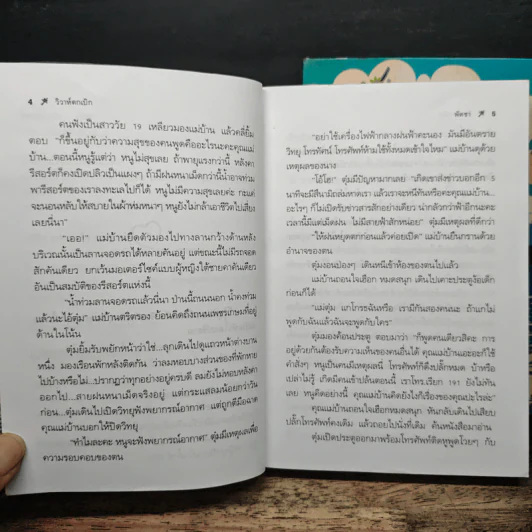 4 วิวาห์ตกเบิก
คนฟังเป็นสาววัย 19 เหลียวมองแม่บ้าน แล้วคลี่ยิ้ม
ตอบ "ก็ขึ้นอยู่กับว่าความสุขของคนพูดคืออะไรนะคะคุณแม่
บ้าน...ตอนนี้หนูรู้แต่ว่า หนูไม่มีสุขเลย ถ้าพายุแรงกว่านี้ หลังคา
รีสอร์ตก็คงเปิดปลิวเป็นแผงๆ ถ้าฝนหนาเม็ดกว่านี้น้ำอาจท่วม
พารีสอร์ตของเราลงทะเลไปก็ได้ หนูไม่มีความสุขเลยค่ะ กะแค่
จะนอนหลับให้สบายในผ้าห่มหนาๆ หนูยังไม่กล้าเอาชีวิตไปเสี่ยง
เลยนี่นา"
"เออ!" แม่บ้านยืดตัวมองไปทางลานกว้างด้านหลัง
บริเวณนั้นเป็นลานจอดรถได้หลายคันอยู่ แต่ขณะนี้ไม่มีรถจอด
สักคันเดียว ยกเว้นมอเตอร์ไซค์แบบผู้หญิงใต้ชายคาคันเดียว
อันเป็นสมบัติของรีสอร์ตแห่งนี้
"น้ำท่วมลานจอดรถแล้วนี่นา ป่านนี้ถนนนอก น้ำคงท่วม
แล้วน่ะไอ้ตุ่ม" แม่บ้านตริตรอง ย้อนคิดถึงถนนเพชรเกษมที่อยู่
ด้านในโน้น
ตุ่มยิ้มรับพยักหน้าว่าใช่...ลุกเดินไปดูแถวหน้าต่างบาน
หนึ่ง มองเรือนพักหลังติดกัน ว่าลมหอบบางส่วนของที่พักหาย
ไปบ้างหรือไม่...ปรากฏว่าทุกอย่างอยู่ครบดี ลมยังไม่หอบหลังคา
ออกไป...สายฝนหนาเม็ดจริงอยู่ แต่กระแสลมน้อยกว่าวัน
ก่อน...ตุ่มเดินไปเปิดวิทยุฟังพยากรณ์อากาศ แต่ถูกตีมือฉาด
คุณแม่บ้านบอกให้ปิดวิทยุ
"ทำไมล่ะคะ หนูจะฟังพยากรณ์อากาศ" ตุ่มมีเหตุผลเพื่อ
ความรอบคอบของตน
พัดชา 5
"อย่าใช้เครื่องไฟฟ้ากลางฝนฟ้าคะนอง มันมีอันตราย
วิทยุ โทรทัศน์ โทรศัพท์ห้ามใช้ทั้งหมดเข้าใจไหม" แม่บ้านดุด้วย
เหตุผลของนาง
"โอ้โฮ!" ตุ่มมีปัญหามากเลย "เกิดเขาส่งข่าวบอกอีก 5
นาทีจะมีสึนามิถล่มหาดเรา แล้วเราจะหนีทันหรือคะคุณแม่บ้าน...
อะไรๆ ก็ไม่เปิดรับข่าวสารสักอย่างเดียว น่ากลัวกว่าฟ้าอีกนะคะ
เวลานี้มีแต่เม็ดฝน ไม่มีสายฟ้าสักหน่อย" ตุ่มมีเหตุผลที่ดีกว่า
"ให้ฝนหยุดตกก่อนแล้วค่อยเปิด" แม่บ้านยืนกรานด้วย
อำนาจของตน
ตุ่มงอนป่องๆ เดินหนีเข้าห้องของตนไปแล้ว
แม่บ้านถอนใจเฮือก หมดสนุก เดินไปเคาะประตูง้อเด็ก
ก่อนก็ได้
"แม่ตุ่ม แกโกรธฉันหรือ เรามีกันสองคนนะ ถ้าแกไม่
พูดกับฉันแล้วฉันจะพูดกับใคร"
ตุ่มมองค้อนประตู ตอบมาว่า "ก็พูดคนเดียวสิคะ การ
อยู่ด้วยกันต้องรับความเห็นของคนอื่นได้ คุณแม่บ้านเอะอะก็ใช้
คำสั่งๆ หนูเป็นคนมีเหตุผลนี่ โทรศัพท์ก็ดึงปลั๊กหมด บ้าหรือ
เปล่าไม่รู้ เกิดมีคนเข้าปล้นตอนนี้ เราโทร.เรียก 191 ยังไม่ทัน
เลย หนูคิดอย่างนี้ คุณแม่บ้านคิดยังไงก็เรื่องของคุณปะไรล่ะ"
คุณแม่บ้านถอนใจเฮือกหมดสนุก หันกลับเดินไปเสียบ
ปลั๊กโทรศัพท์คงเดิม แล้วถอยไปนั่งที่เดิม ค้นหนังสือมาอ่าน
ตุ่มเปิดประตูออกมาพร้อมโทรศัพท์ติดหูพูดโวยๆ กับ